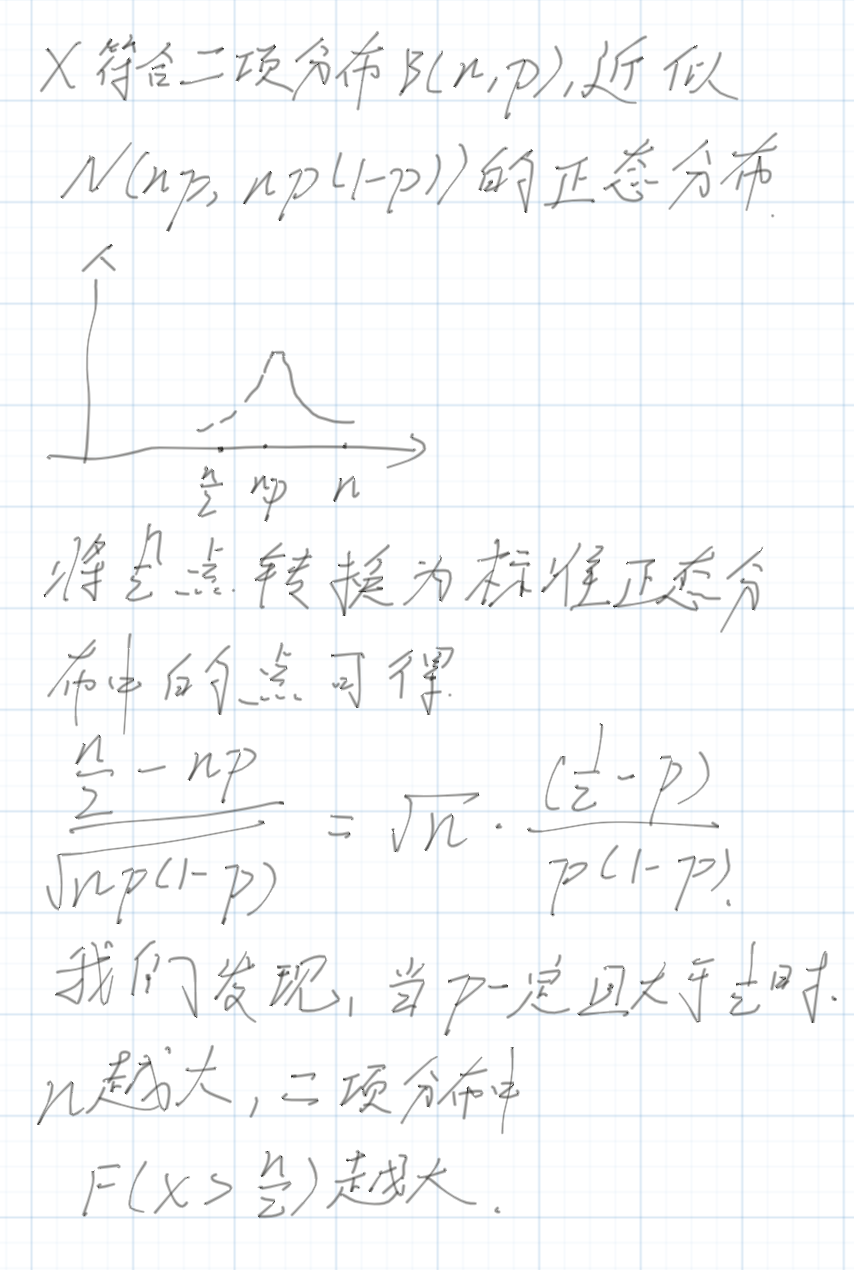 X符合二项分布B(n,p),近似
N(np, np(1-p))的正态分布.
n/2 np n
将 n/2 点转换为标准正态分
布中的点可得.
(n/2 - np)/√(np(1-p)) = √n · (1/2 - p)/(p(1-p)).
我们发现,当p一定且大于1/2时.
n越大,二项分布中
F(x > n/2)越大.